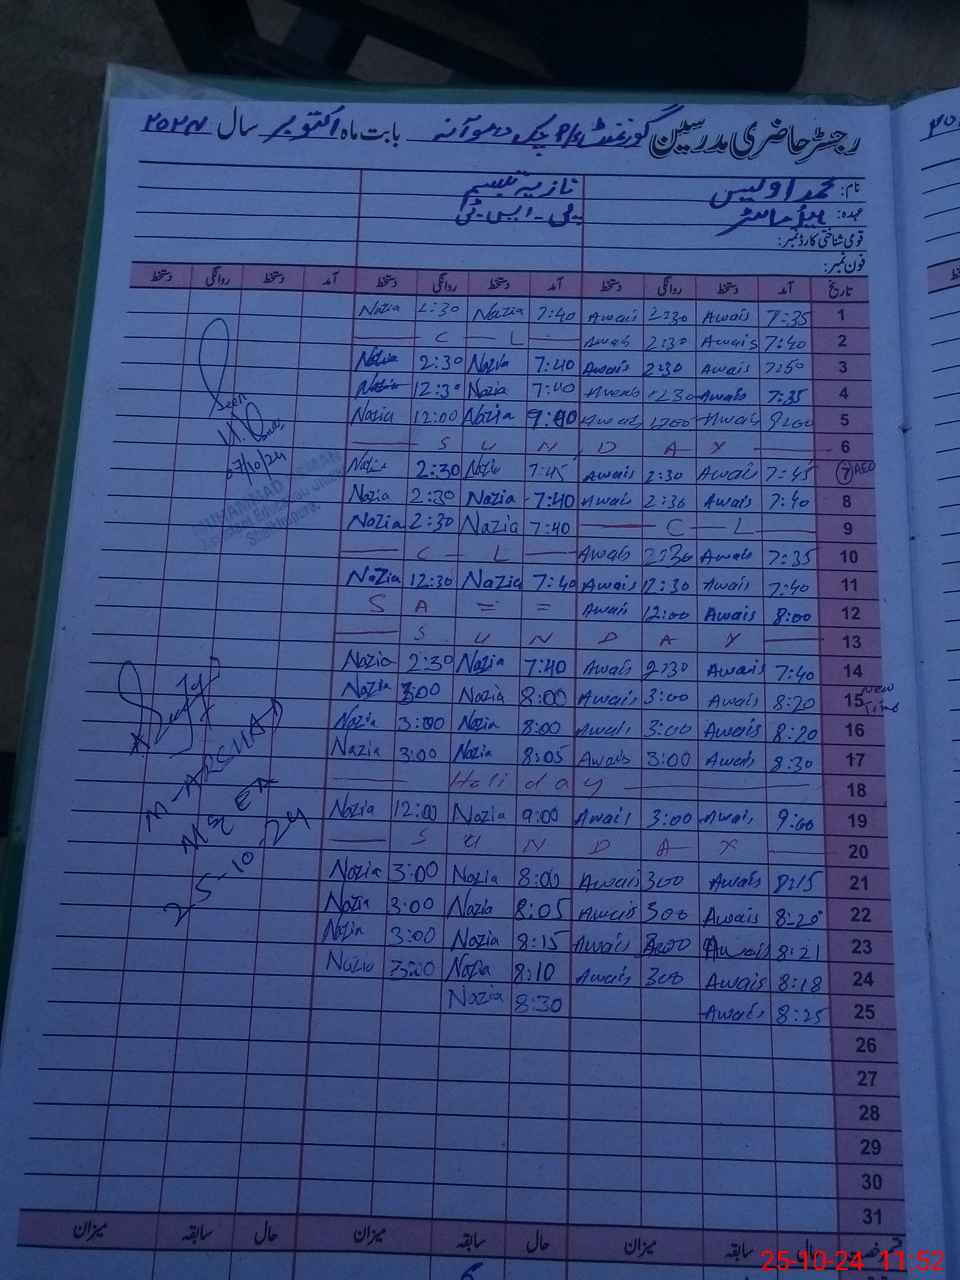 رجسٹر حاضری مدرسین گورنمنٹ چک بابت ماہ اکتوبر سال ۲۰۲۴
نام: محمد اویس نازیہ تبسم
عہدہ: ہیڈ ماسٹر پی-ایس-ٹی
قومی شناختی کارڈ نمبر:
فون نمبر:
تاریخ آمد دستخط روانگی دستخط آمد دستخط روانگی دستخط آمد دستخط روانگی دستخط
1 7:35 Awais 2:30 Awais 7:40 Nazia 2:30 Nazia
2 7:40 Awais 2:30 Awais L C
3 7:50 Awais 2:30 Awais 7:40 Nazia 2:30 Nazia
4 7:35 Awais 12:30 Awais 7:40 Nazia 12:30 Nazia
5 9:00 Awais 1200 Awais 9:00 Nazia 12:00 Nazia
6 S U N D A Y
7 AEO 7:45 Awais 2:30 Awais 7:45 Nazia 2:30 Nazia
8 7:40 Awais 2:30 Awais 7:40 Nazia 2:30 Nazia
9 C L 7:40 Nazia 2:30 Nazia
10 7:35 Awais 2:30 Awais C L
11 7:40 Awais 12:30 Awais 7:40 Nazia 12:30 Nazia
12 8:00 Awais 12:00 Awais S A = =
13 S U N D A Y
14 7:40 Awais 2:30 Awais 7:40 Nazia 2:30 Nazia
15 New Time 8:20 Awais 3:00 Awais 8:00 Nazia 3:00 Nazia
16 8:20 Awais 3:00 Awais 8:00 Nazia 3:00 Nazia
17 8:30 Awais 3:00 Awais 8:05 Nazia 3:00 Nazia
18 Holiday
19 9:00 Awais 3:00 Awais 9:00 Nazia 12:00 Nazia
20 S U N D A Y
21 8:15 Awais 300 Awais 8:00 Nazia 3:00 Nazia
22 8:20 Awais 300 Awais 8:05 Nazia 3:00 Nazia
23 8:21 Awais 3:00 Awais 8:15 Nazia 3:00 Nazia
24 8:18 Awais 300 Awais 8:10 Nazia 3:00 Nazia
25 8:25 Awais 8:30 Nazia
26
27
28
29
30
31
Seen
07/10/24
MUHAMMAD
M-ARSHAD
MEA
25-10-24
حال سابقہ میزان حال سابقہ میزان حال سابقہ میزان
25-10-24 11:52